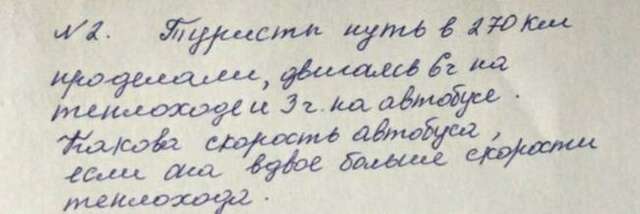 N 2. Туристы путь в 270 км
проделали, двигаясь 6ч на
теплоходе и 3ч. на автобусе.
Какова скорость автобуса,
если она вдвое больше скорости
теплохода.